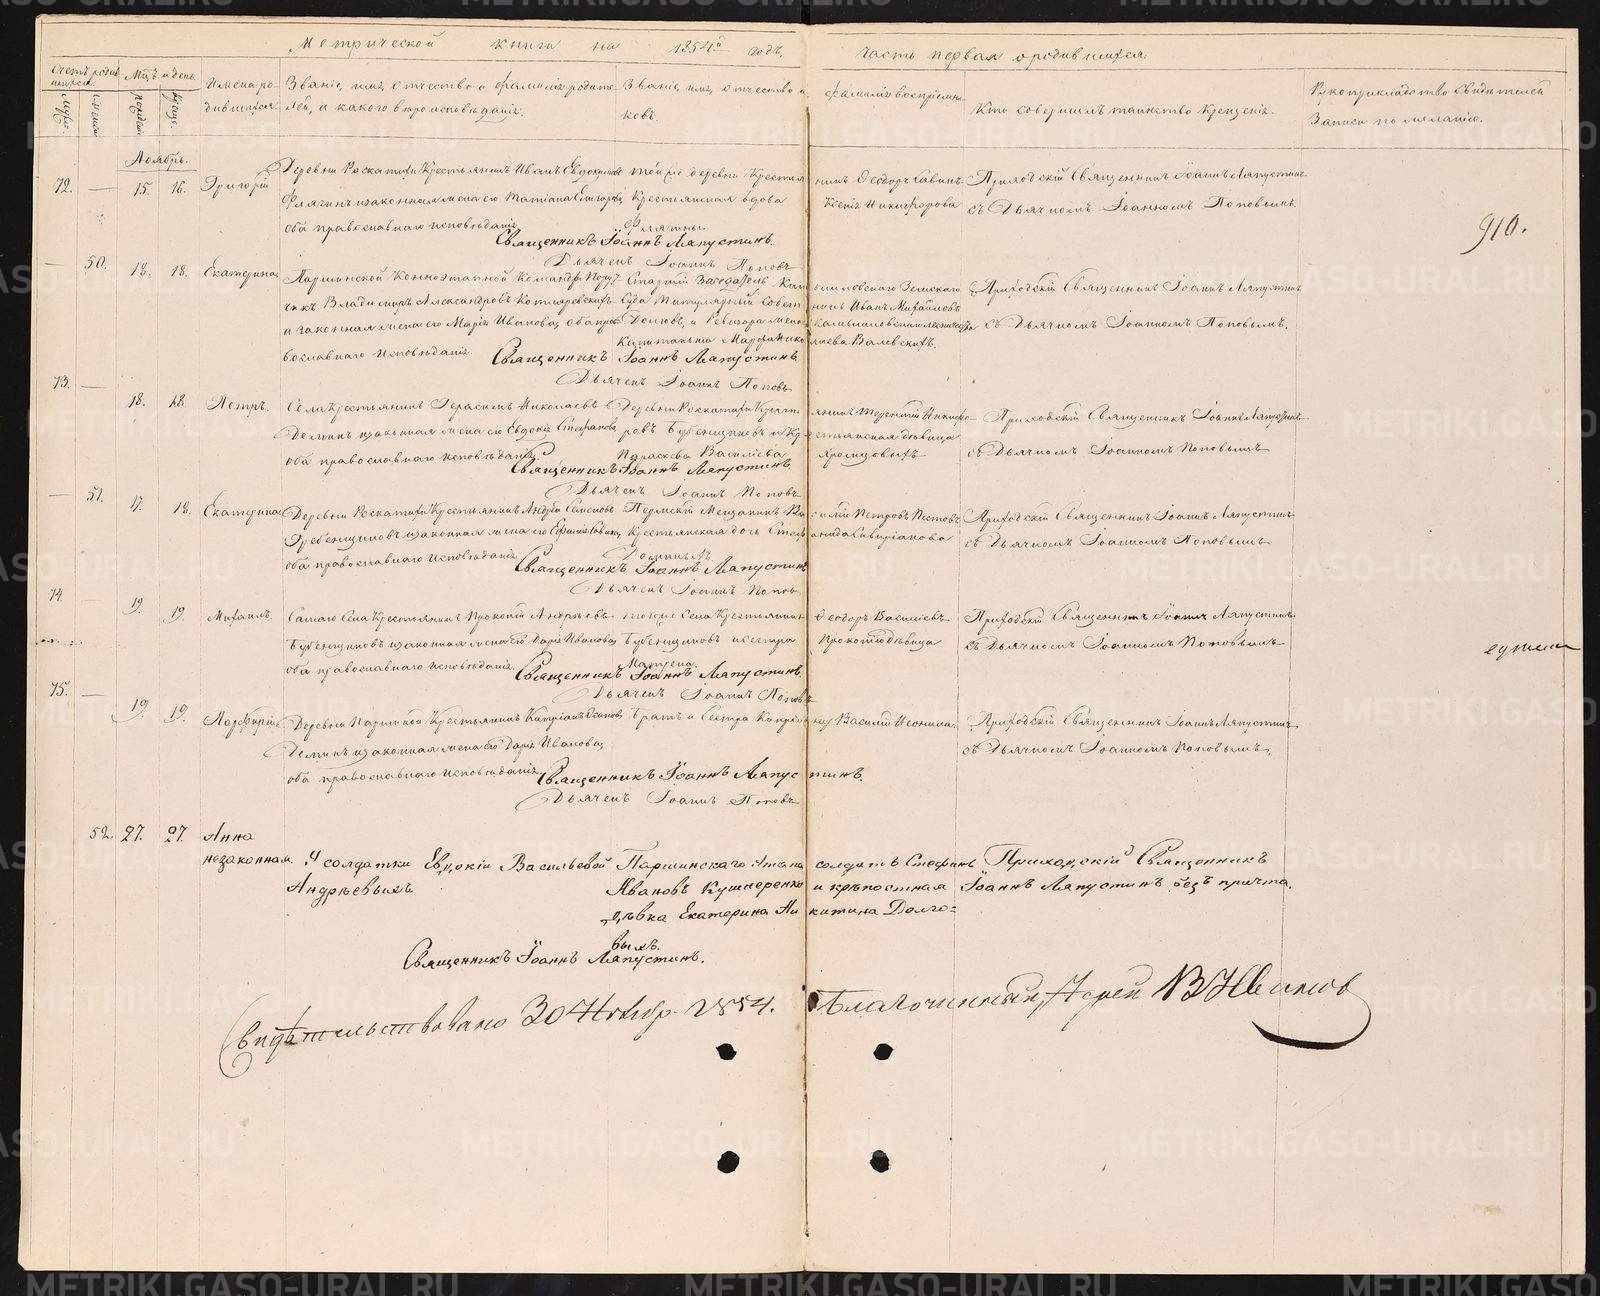 Метрической книги на 1854й годъ,
часть первая о родившихся.
Счетъ родившихся.
Мужс.
Женска
Мцъ и день
рожден.
крещ.
Имена родившихся.
Званіе, имя, отчество и фамилія родителей, и какого вероисповѣданія.
Званіе, имя, отчество и фамилія воспріемниковъ.
Кто совершилъ таинство крещенія.
Рукоприкладство свидѣтелей записи по желанію.
Ноябрь.
910.
72. — 15. 16. Григорій
Деревни Роскатихи Крестьянинъ Иванъ Евдокимовъ
Флягинъ и законная жена его Татіана Григорьева,
оба православнаго исповѣданія
той же деревни Крестьянинъ Ѳеодоръ Савинъ
Крестьянская вдова Ксенія Никифорова
Флягины
Приходскій Священникъ Іоаннъ Ляпустинъ
съ Дьячкомъ Іоанномъ Поповымъ.
Священникъ Іоаннъ Ляпустинъ.
Дьячекъ Іоаннъ Поповъ
— 50. 18. 18. Екатерина
Паршинской Конноэтапной Команды Поручикъ
Владимиръ Александровъ Котляревскій
и законная жена его Марія Иванова, оба православнаго исповѣданія
Старшій Засѣдатель Камышловскаго Земскаго
Суда Титулярный Совѣтникъ Иванъ Михайловъ
Долговъ, и Ревизора Камышловскаго лесничества
Капитанша Валевскихъ.
Приходскій Священникъ Іоаннъ Ляпустинъ
съ Дьячкомъ Іоанномъ Поповымъ.
Священникъ Іоаннъ Ляпустинъ.
Дьячекъ Іоаннъ Поповъ
73. — 18. 18. Петръ.
Села Крестьянинъ Герасимъ Николаевъ
Деминъ и законная жена его Евдокія Стефанова
оба православнаго исповѣданія
Деревни Роскатихи Крестьянинъ Терентій Никифоровъ
Бубенщиковъ и Крестьянская дѣвица
Параскева Василіева Хромцовыхъ
Приходскій Священникъ Іоаннъ Ляпустинъ
съ Дьячкомъ Іоанномъ Поповымъ
Священникъ Іоаннъ Ляпустинъ.
Дьячекъ Іоаннъ Поповъ
— 51. 17. 18. Екатерина
Деревни Роскатихи Крестьянинъ Андрей Семеновъ
Гребенщиковъ и законная жена его Ефимія Савина,
оба православнаго исповѣданія
Пермскій Мещанинъ Василій Петровъ Пестовъ
Крестьянская дочь Стефанида Савиріанова
Деминыхъ.
Приходскій Священникъ Іоаннъ Ляпустинъ
съ Дьячкомъ Іоанномъ Поповымъ
Священникъ Іоаннъ Ляпустинъ
Дьячекъ Іоаннъ Поповъ
74. — 19. 19. Михаилъ.
Самаго Села Крестьянинъ Прокопій Андреевъ
Бубенщиковъ и законная жена его Дарія Иванова,
оба православнаго исповѣданія.
тогоже Села Крестьянинъ Ѳеодоръ Василіевъ
Бубенщиковъ и сестра Прокопію дѣвица
Матрена.
Приходскій Священникъ Іоаннъ Ляпустинъ
съ Дьячкомъ Іоанномъ Поповымъ
Священникъ Іоаннъ Ляпустинъ.
Дьячекъ Іоаннъ Поповъ
75. — 19. 19. Порфирій
Деревни Паршиной Крестьянинъ Кипріанъ Осиповъ
Деминъ и законная жена его Дарія Иванова,
оба православнаго исповѣданія
Братъ и Сестра Кипріану Василій Неонила.
Приходскій Священникъ Іоаннъ Ляпустинъ
съ Дьячкомъ Іоанномъ Поповымъ,
Священникъ Іоаннъ Ляпустинъ.
Дьячекъ Іоаннъ Поповъ
52. 27. 27. Анна
незаконная.
У солдатки Евдокіи Васильевой
Андрѣевыхъ.
Паршинскаго этапа солдатъ Стефанъ
Ивановъ Кушнеренко и крѣпостная
дѣвка Екатерина Никитина Долго=
выхъ.
Приходскій Священникъ
Іоаннъ Ляпустинъ безъ причта.
Священникъ Іоаннъ Ляпустинъ.
Свидѣтельствовано 30 Ноября 1854. Благочинный, Іерей
METRIKI.GASO-URAL.RU